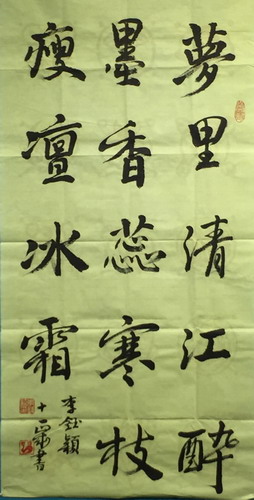 夢里清江醉
墨香蕊寒枝
瘦凛冰霜
李鈺穎
十歲書